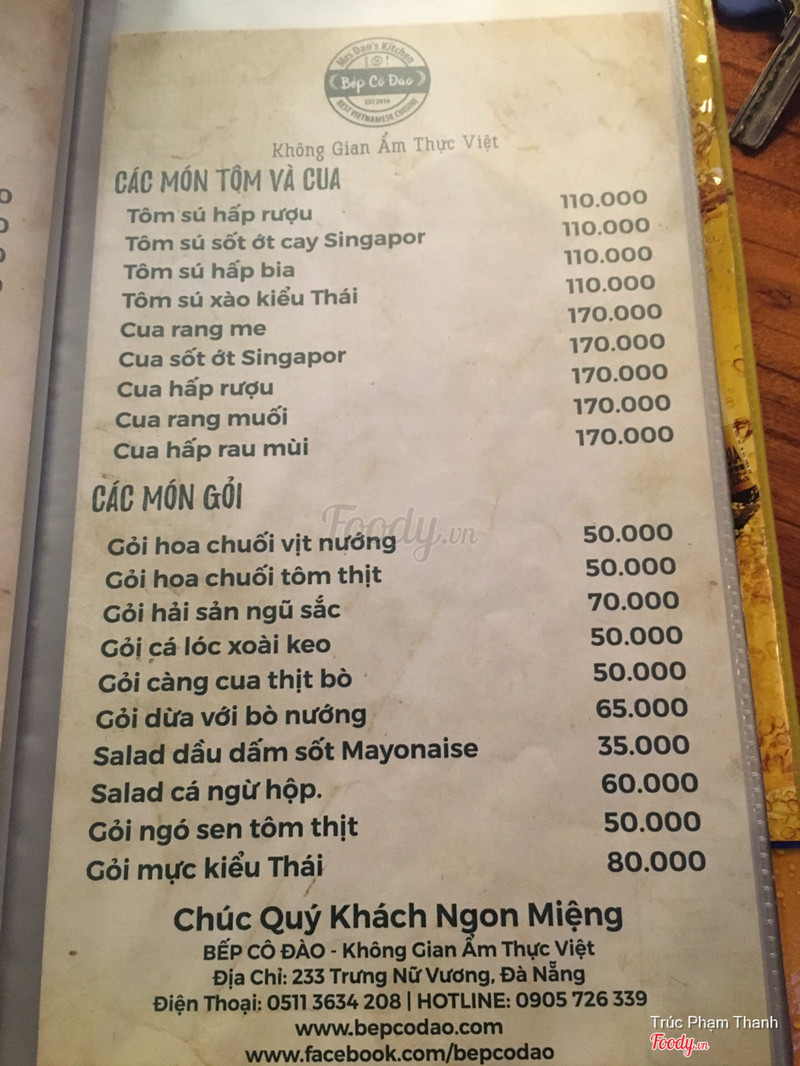 Mrs Dao's Kitchen
Bếp Cô Đào
EST 2016
BEST VIETNAMESE CUISINE
Không Gian Ẩm Thực Việt
CÁC MÓN TÔM VÀ CUA
Tôm sú hấp rượu 110.000
Tôm sú sốt ớt cay Singapor 110.000
Tôm sú hấp bia 110.000
Tôm sú xào kiểu Thái 110.000
Cua rang me 170.000
Cua sốt ớt Singapor 170.000
Cua hấp rượu 170.000
Cua rang muối 170.000
Cua hấp rau mùi 170.000
CÁC MÓN GỎI
Foody.vn
Gỏi hoa chuối vịt nướng 50.000
Gỏi hoa chuối tôm thịt 50.000
Gỏi hải sản ngũ sắc 70.000
Gỏi cá lóc xoài keo 50.000
Gỏi càng cua thịt bò 50.000
Gỏi dừa với bò nướng 65.000
Salad dầu dấm sốt Mayonaise 35.000
Salad cá ngừ hộp. 60.000
Gỏi ngó sen tôm thịt 50.000
Gỏi mực kiểu Thái 80.000
Chúc Quý Khách Ngon Miệng
BẾP CÔ ĐÀO - Không Gian Ẩm Thực Việt
Địa Chỉ: 233 Trưng Nữ Vương, Đà Nẵng
Điện Thoại: 0511 3634 208 | HOTLINE: 0905 726 339
www.bepcodao.com
www.facebook.com/bepcodao
Trúc Phạm Thanh
Foody.vn